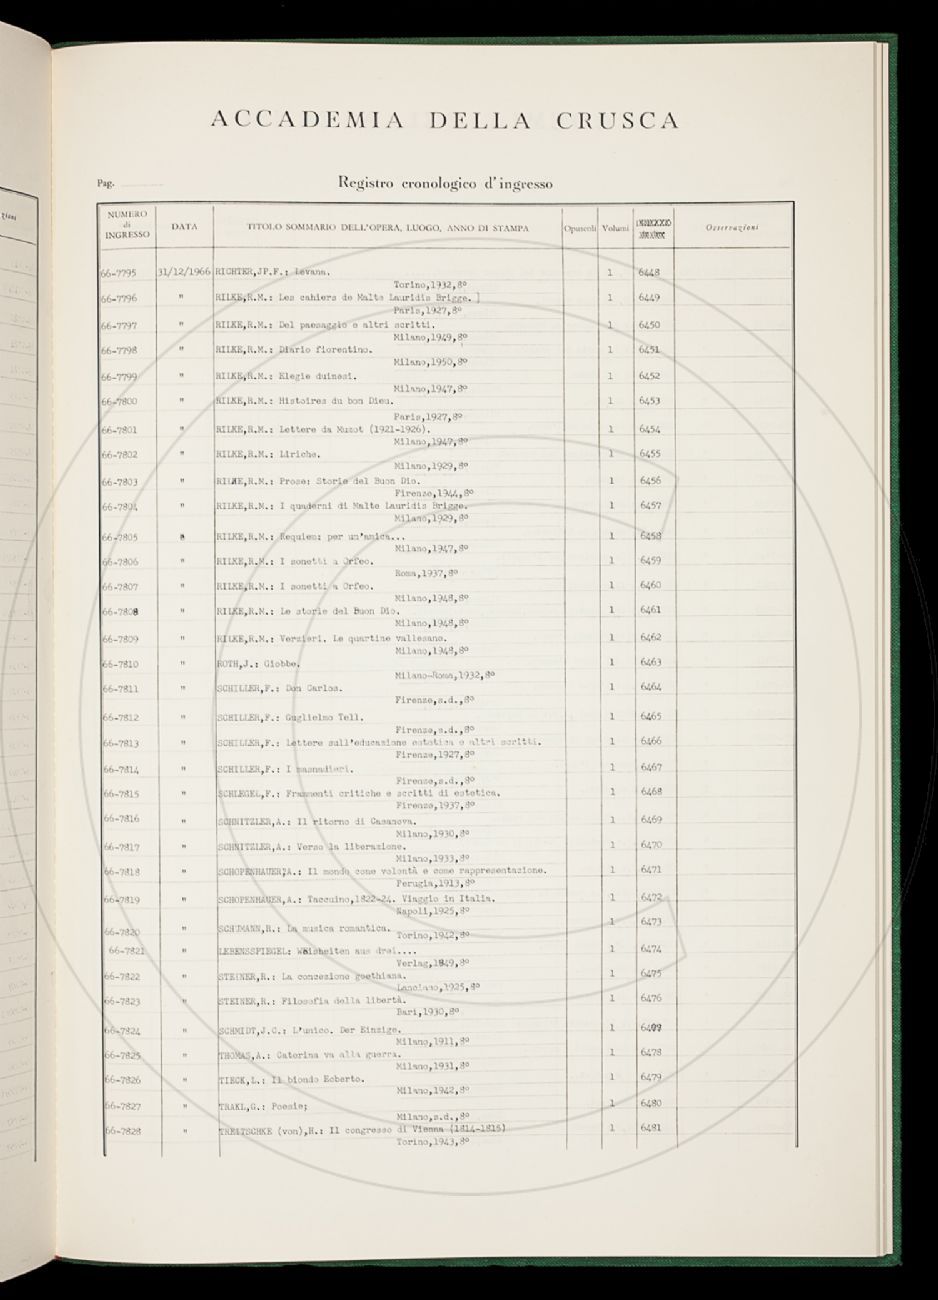 ACCADEMIA DELLA CRUSCA
Pag.
Registro cronologico d'ingresso
NUMERO di INGRESSO DATA TITOLO SOMMARIO DELL'OPERA, LUOGO, ANNO DI STAMPA Opuscoli Volumi Osservazioni
66-7795 31/12/1966 RICHTER,JP.F.: Levana. 1 6448
Torino,1932,8º
66-7796 " RILKE,R.M.: Les cahiers de Malte Lauridis Brigge. ] 1 6449
Paris,1927,8º
66-7797 " RILKE,R.M.: Del paesaggio e altri scritti. 1 6450
Milano,1949,8º
66-7798 " RILKE,R.M.: Diario fiorentino. 1 6451
Milano,1950,8º
66-7799 " RILKE,R.M.: Elegie duinesi. 1 6452
Milano,1947,8º
66-7800 " RILKE,R.M.: Histoires du bon Dieu. 1 6453
Paris,1927,8º
66-7801 " RILKE,R.M.: Lettere da Muzot (1921-1926). 1 6454
Milano,1947,8º
66-7802 " RILKE,R.M.: Liriche. 1 6455
Milano,1929,8º
66-7803 " RILKE,R.M.: Prose: Storie del Buon Dio. 1 6456
Firenze,1944,8º
66-7804 " RILKE,R.M.: I quaderni di Malte Lauridis Brigge. 1 6457
Milano,1929,8º
66-7805 " RILKE,R.M.: Requiem: per un'amica... 1 6458
Milano,1947,8º
66-7806 " RILKE,R.M.: I sonetti a Orfeo. 1 6459
Roma,1937,8º
66-7807 " RILKE,R.M.: I sonetti a Orfeo. 1 6460
Milano,1948,8º
66-7808 " RILKE,R.M.: Le storie del Buon Dio. 1 6461
Milano,1948,8º
66-7809 " RILKE,R.M.: Verzieri. Le quartine vallesane. 1 6462
Milano,1948,8º
66-7810 " ROTH,J.: Giobbe. 1 6463
Milano-Roma,1932,8º
66-7811 " SCHILLER,F.: Don Carlos. 1 6464
Firenze,s.d.,8º
66-7812 " SCHILLER,F.: Guglielmo Tell. 1 6465
Firenze,s.d.,8º
66-7813 " SCHILLER,F.: Lettere sull'educazione estetica e altri scritti. 1 6466
Firenze,1927,8º
66-7814 " SCHILLER,F.: I masnadieri. 1 6467
Firenze,s.d.,8º
66-7815 " SCHLEGEL,F.: Frammenti critiche e scritti di estetica. 1 6468
Firenze,1937,8º
66-7816 " SCHNITZLER,A.: Il ritorno di Casanova. 1 6469
Milano,1930,8º
66-7817 " SCHNITZLER,A.: Verso la liberazione. 1 6470
Milano,1933,8º
66-7818 " SCHOPENHAUER,A.: Il mondo come volontà e come rappresentazione. 1 6471
Perugia,1913,8º
66-7819 " SCHOPENHAUER,A.: Taccuino,1822-24. Viaggio in Italia. 1 6472
Napoli,1925,8º
66-7820 " SCHUMANN,R.: La musica romantica. 1 6473
Torino,1942,8º
66-7821 " LEBENSSPIEGEL: Weisheiten aus drei.... 1 6474
Verlag,1849,8º
66-7822 " STEINER,R.: La concezione goethiana. 1 6475
Lanciano,1925,8º
66-7823 " STEINER,R.: Filosofia della libertà. 1 6476
Bari,1930,8º
66-7824 " SCHMIDT,J.C.: L'unico. Der Einzige. 1
Milano,1911,8º
66-7825 " THOMAS,A.: Caterina va alla guerra. 1 6478
Milano,1931,8º
66-7826 " TIECK,L.: Il biondo Ecberto. 1 6479
Milano,1942,8º
66-7827 " TRAKL,G.: Poesie; 1 6480
Milano,s.d.,8º
66-7828 " TREITSCHKE (von),H.: Il congresso di Vienna (1814-1815) 1 6481
Torino,1943,8º